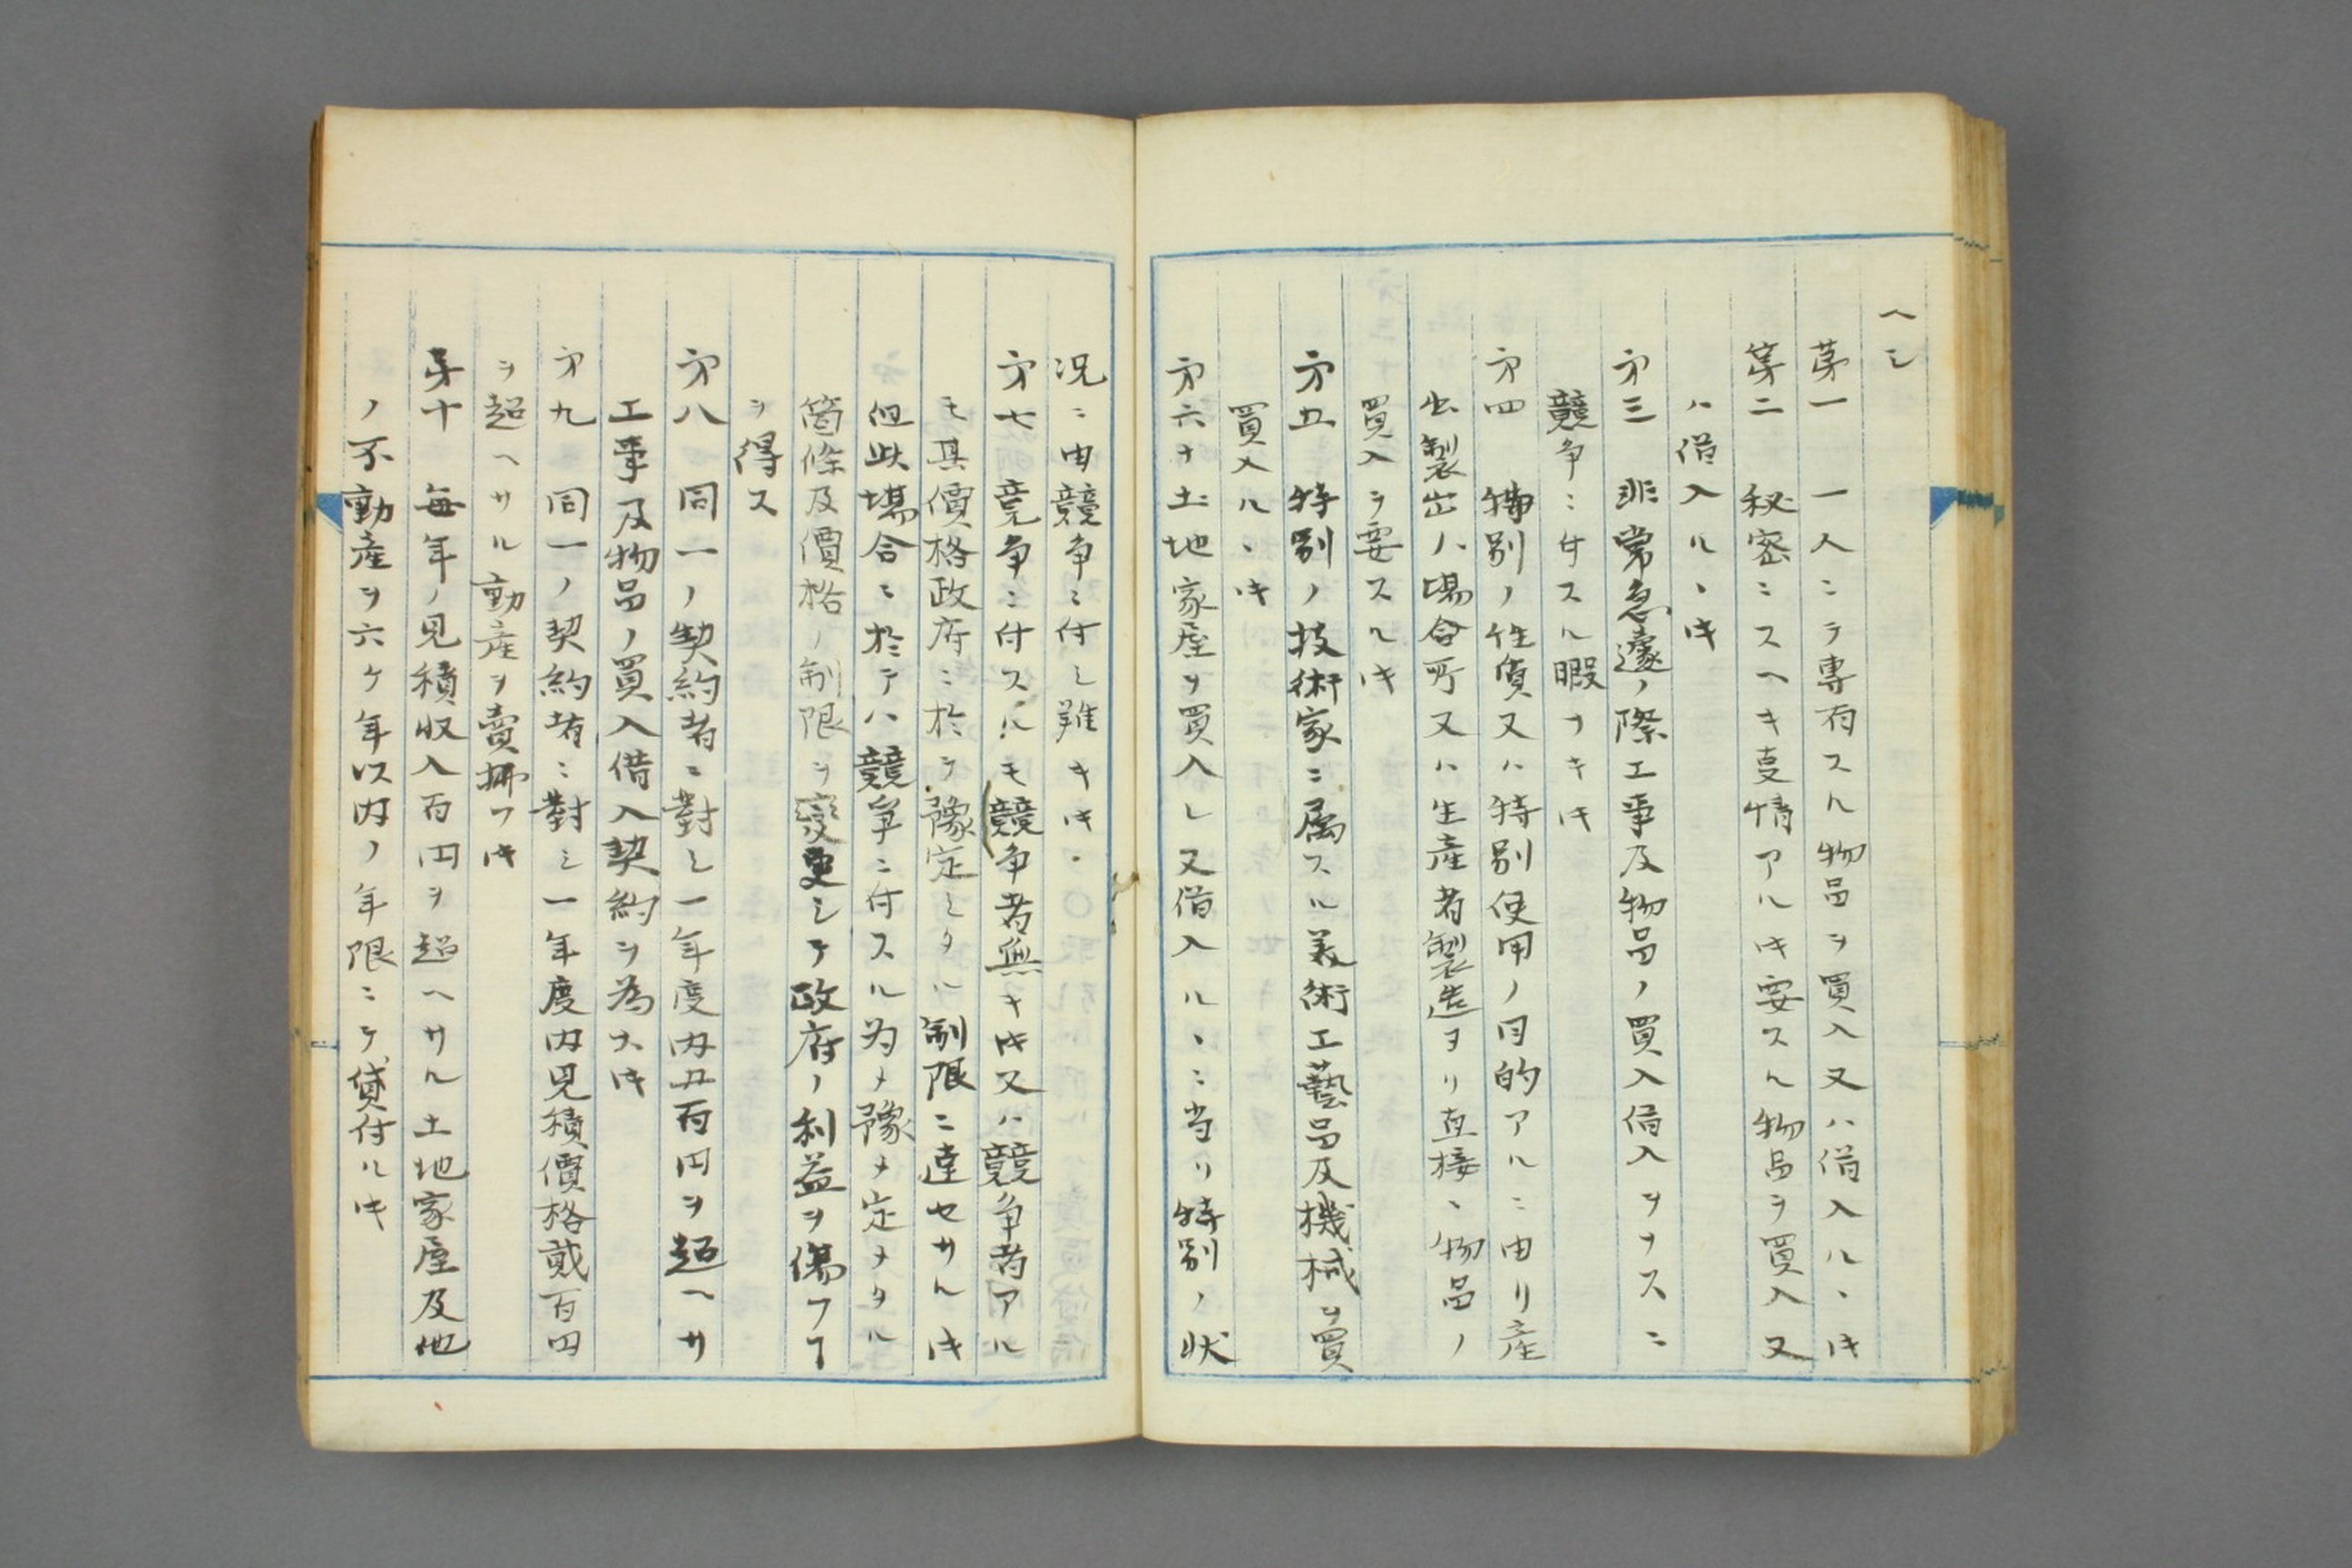 ヘシ
第一　一人ニテ専有スル物品ヲ買入又ハ借入ルヽ𪜈
第二　秘密ニスヘキ事情アル𪜈要スル物品ヲ買入又
ハ借入ルヽ𪜈
第三　非常急遽ノ際工事及物品ノ買入借入ヲナスニ
競争ニ付スル暇ナキ𪜈
第四　特別ノ性質又ハ特別使用ノ目的アルニ由リ産
出製出ノ場合所又ハ生産者製造ヨリ直接ヽ物品ノ
買入ヲ要スル𪜈
第五　特別ノ技術家ニ属スル美術工藝品及機械ヲ買
買入ルヽ𪜈
第六ナ土地家屋ヲ買入レ又借入ルヽニ当リ特別ノ状
況ニ由競争ニ付シ難キ𪜈
第七　競争ニ付スルモ競争者無キ𪜈又ハ競争者アル
モ其價格政府ニ於テ豫定シタル制限ニ達セサル𪜈
但此場合ニ於テハ競争ニ付スル為メ豫メ定メタル
箇條及價格ノ制限ヲ変更シテ政府ノ利益ヲ傷フヿ
ヲ得ス
第八　同一ノ契約者ニ對シ一年度内五百円ヲ超ヘサ
工事及物品ノ買入借入契約ヲ為ス𪜈
第九　同一ノ契約者ニ對シ一年度内見積價格貳百円
ヲ超ヘサル動産ヲ賣拂フ𪜈
第十　毎年ノ見積収入百円ヲ超ヘサル土地家屋及他
ノ不動産ヲ六ケ年以内ノ年限ニテ貸付ル𪜈